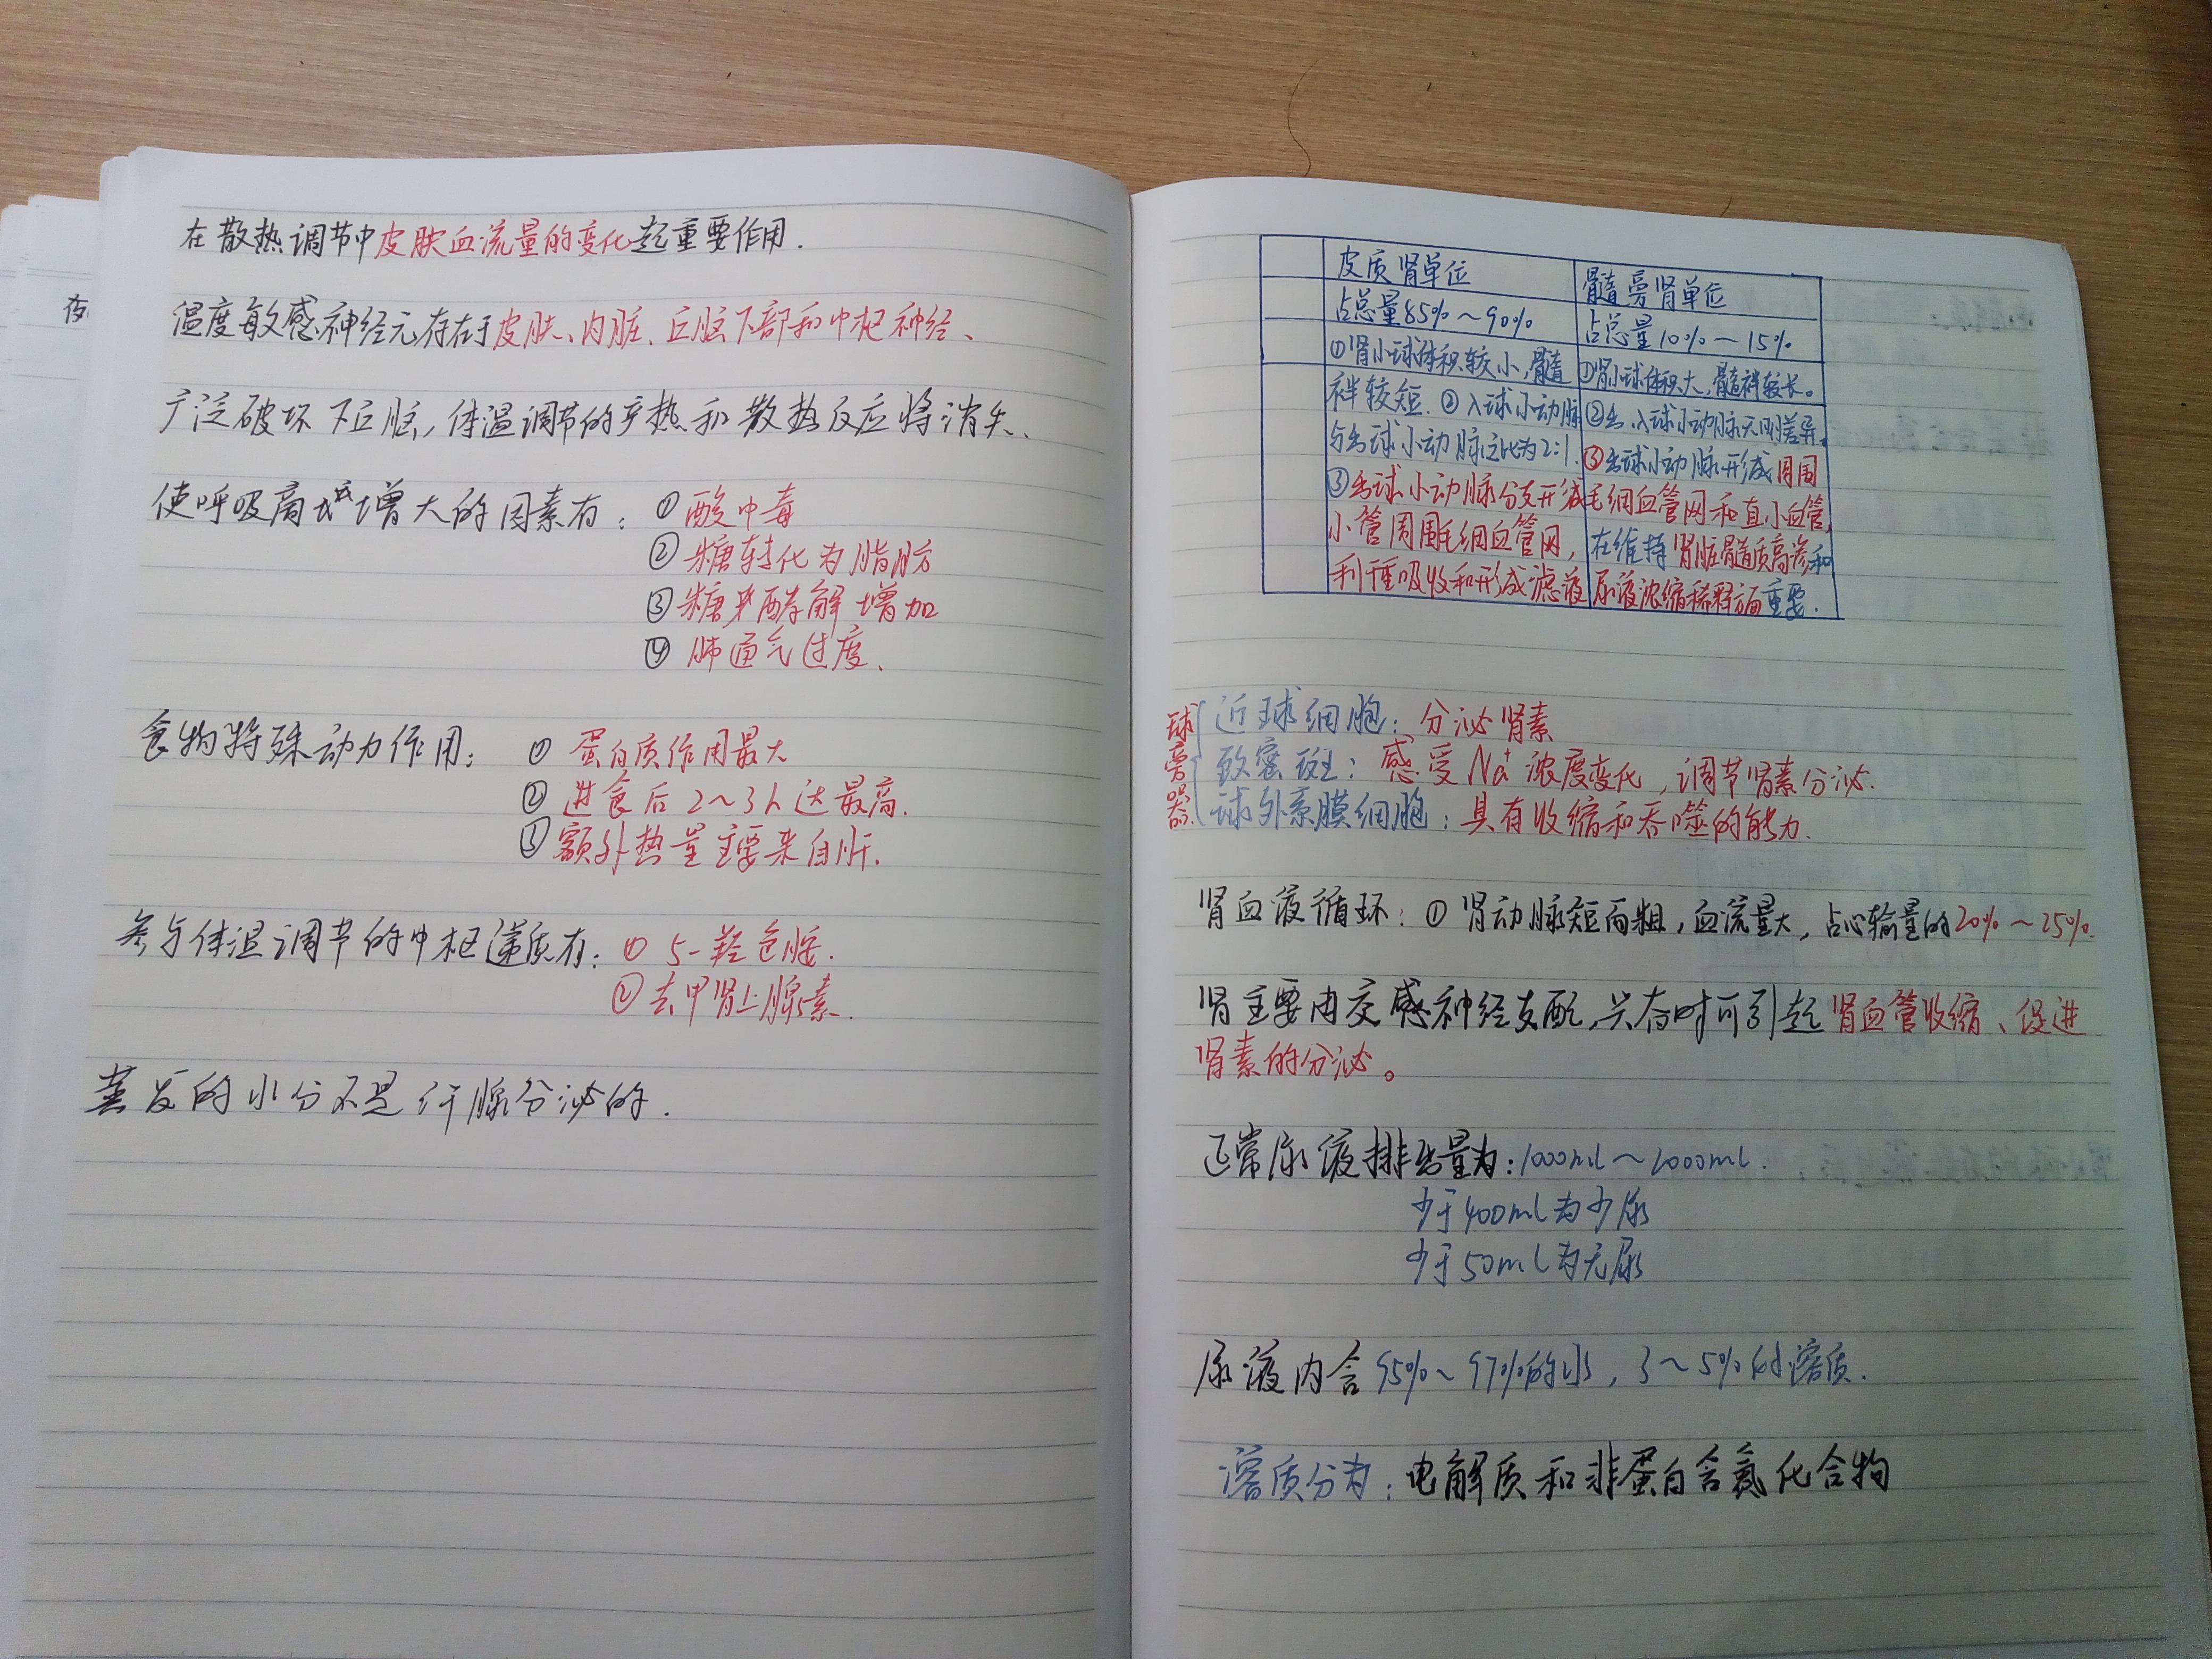 在散热调节中皮肤血流量的变化起重要作用.
温度敏感神经元存在于皮肤、内脏、丘脑下部和中枢神经、
广泛破坏下丘脑,体温调节的产热和散热反应将消失、
使呼吸商增大的因素有: ①酸中毒
②糖转化为脂肪
③糖酵解增加
④肺通气过度、
食物特殊动力作用: ①蛋白质作用最大
②进食后2~3h达最高.
③额外热量主要来自肝.
参与体温调节的中枢递质有: ① 5-羟色胺.
②去甲肾上腺素.
蒸发的水分不是汗腺分泌的.
皮质肾单位 髓旁肾单位
占总量85%~90% 占总量10%~15%
①肾小球体积较小,髓
袢较短.②入球小动脉
与出球小动脉之比为2:1.
③出球小动脉分支形成
小管周围毛细血管网,
利于重吸收和形成滤液
①肾小球体积大,髓袢较长。
②出、入球小动脉无明差异.
③出球小动脉形成周围
毛细血管网和直小血管,
在维持肾脏髓质高渗和
尿液浓缩稀释方面重要.
球旁器
近球细胞: 分泌肾素
致密斑: 感受Na⁺浓度变化,调节肾素分泌.
球外系膜细胞: 具有收缩和吞噬的能力.
肾血液循环: ①肾动脉短而粗,血流量大,占心输量的20%~25%.
肾主要由交感神经支配,兴奋时可引起肾血管收缩、促进
肾素的分泌。
正常尿液排出量为:1000ml~2000ml.
少于400ml为少尿
少于50ml为无尿
尿液内含95%~97%的水,3~5%的溶质.
溶质分为: 电解质和非蛋白含氮化合物